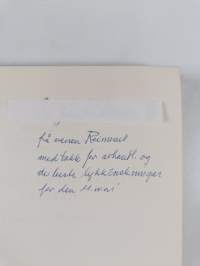 på venen Reinout
med takk for arbeidl. og
de beste lykkønskninger
for den 11. mai